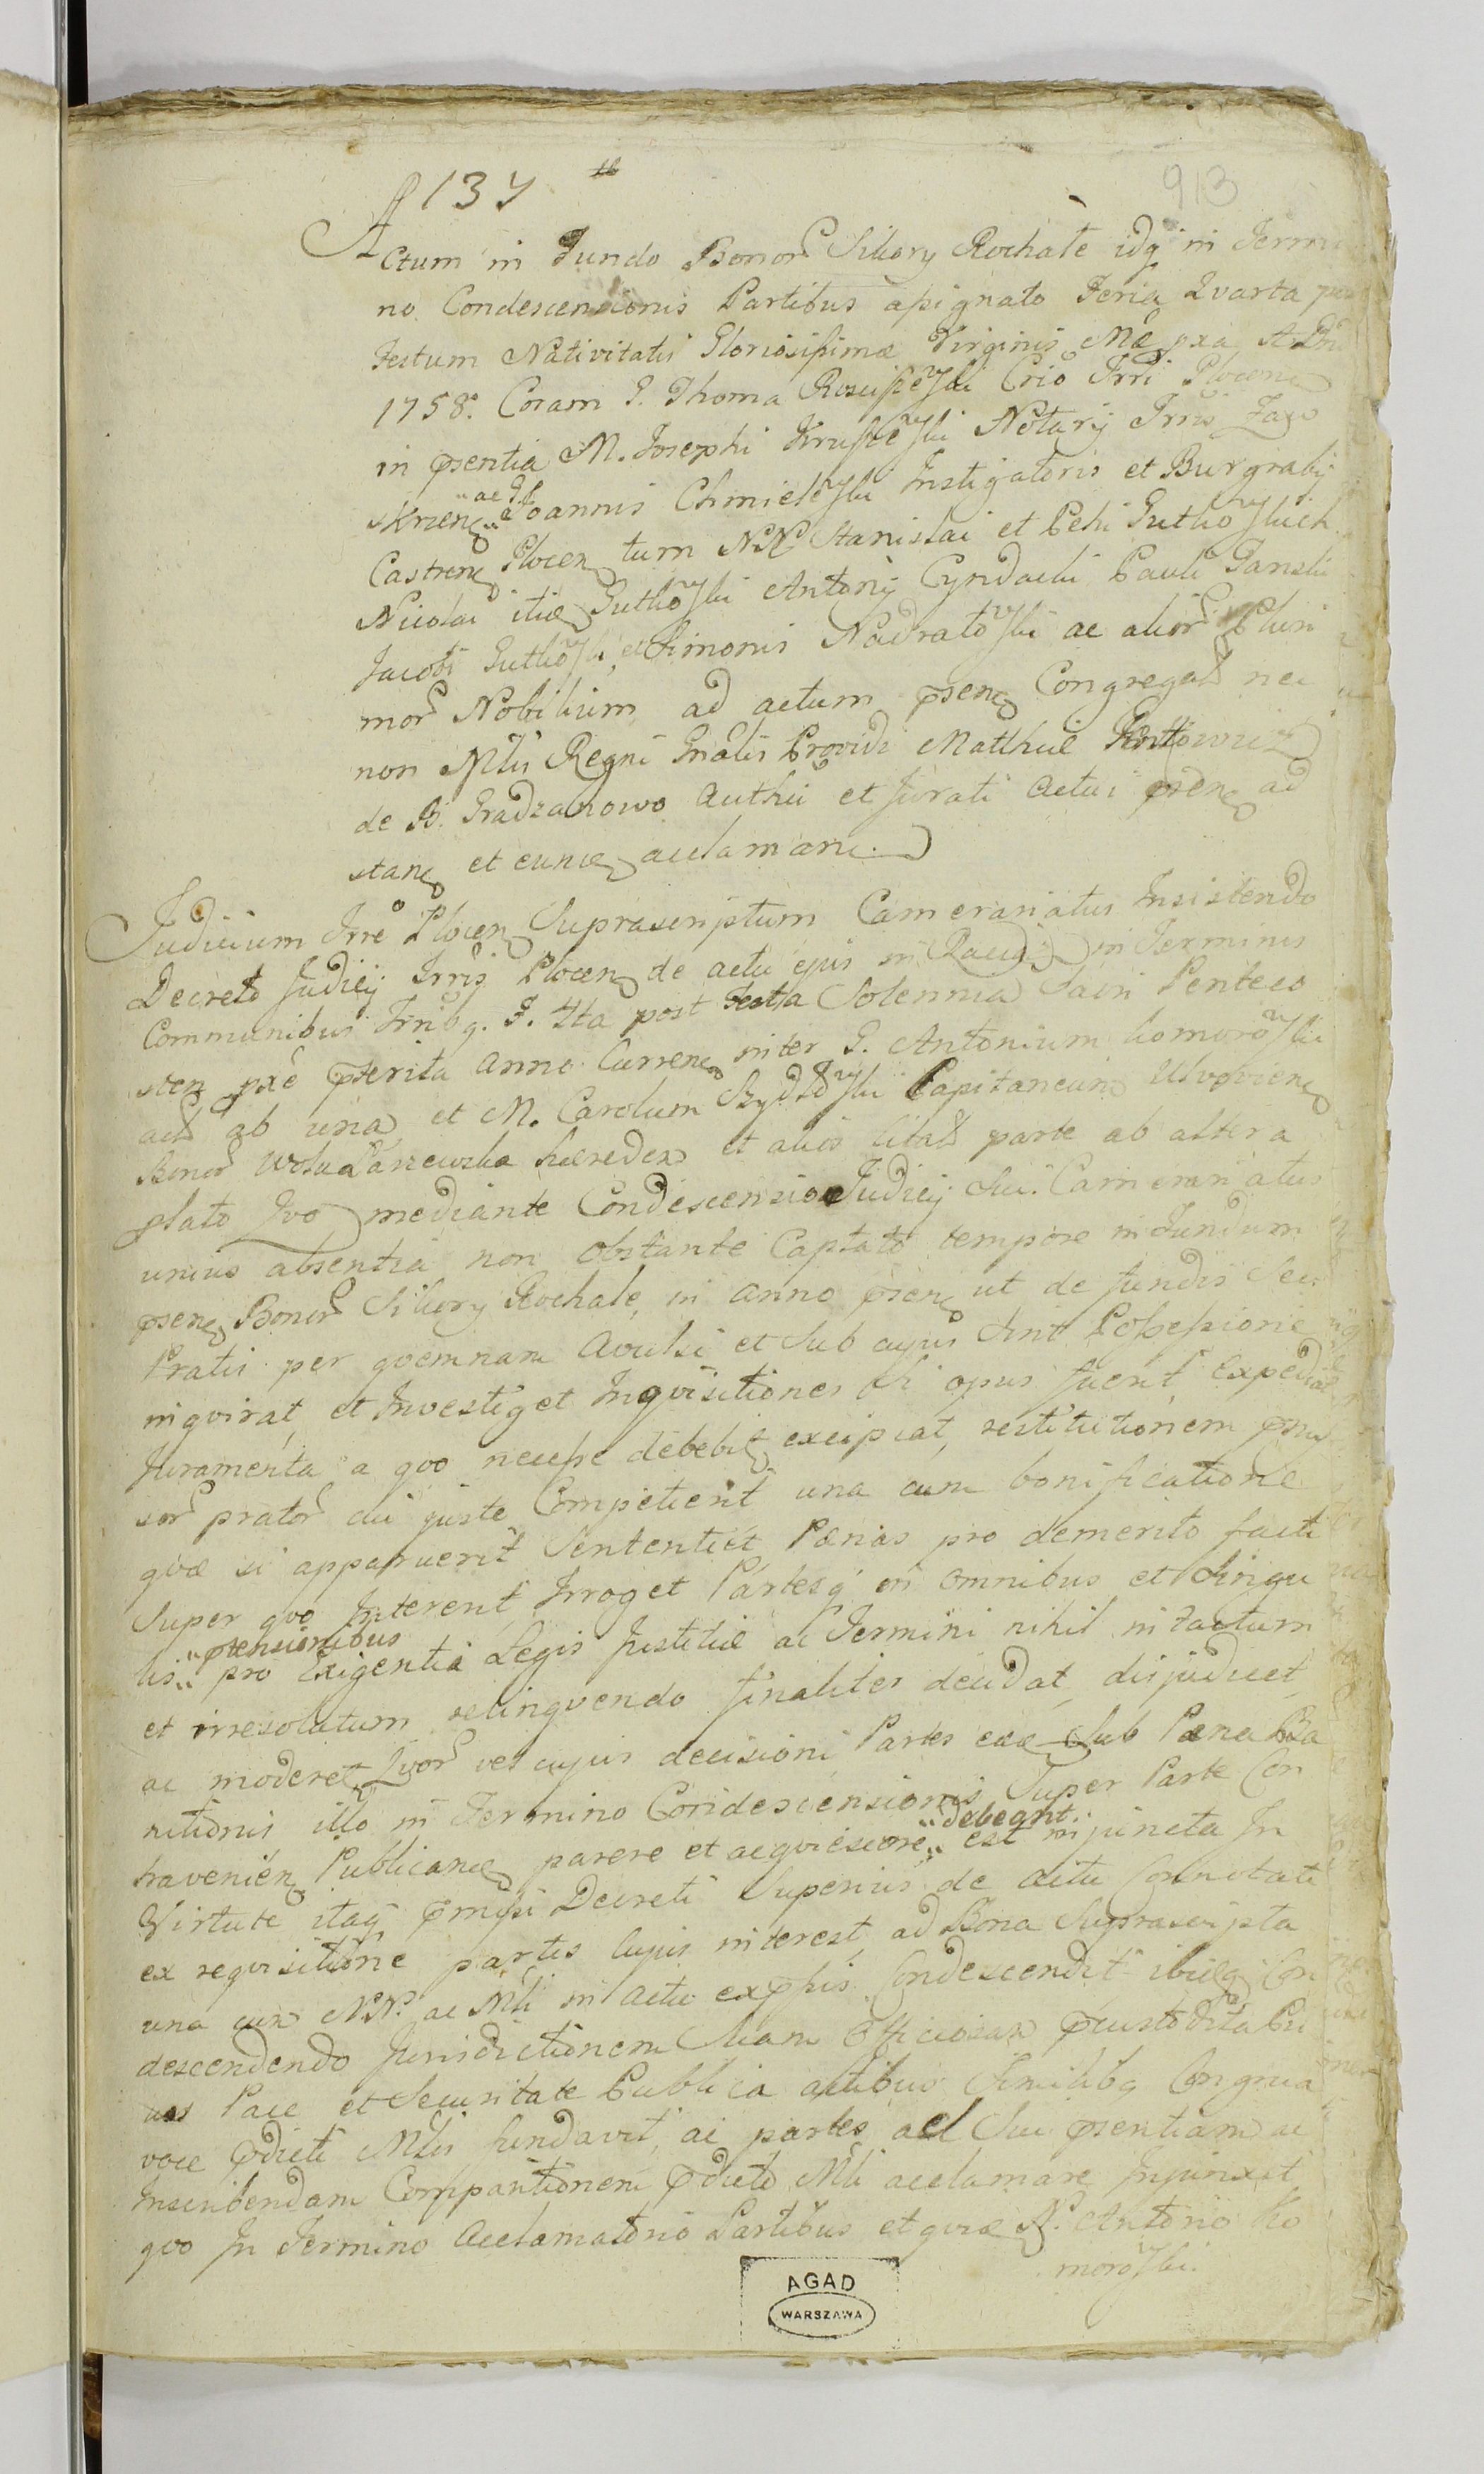 137
913
Actum in Fundo Bonor Sikory Rochale idq in Termi
no Condescensionis Partibus assignato Feria Quarta
Festum Nativitatis Gloriosissimæ Virginis Mæ pxa A D
1758. Coram G. Thoma Rosciszewski Crio Trri Plocen
in psentia M. Josephi Kruszewski Notarij Trris Zaw
Skrzen "ac G." Joannis Chmielewski Instigatoris et Burgrabij
Castren Plocen tum NN Stanislai et Petri Gutkowskich
Nicolai itiæ Gutkowski Antonij Cyndacki Pauli Ganski
Jacobi Gutkowski, et Simonis Nadratowski ac alior Pluri
mor Nobilium ad actum psen Congregat nec
non Mlis Regni Gnalis Providi Matthiæ
de B. Gradzanowo Authci et Jurati actui psen ad
stan et eunic acclaman.
Judicium Trre Plocen Suprascriptum Camerariatus Insistendo
Decreto Judicij Trris Plocen de actu ejus in Raciąż in Terminis
Communibus Trribq. F. 4ta post Festa Solennia Sacri Penteco
sten pxe pterita anno Curren inter G. Antonium Komorowski
act ab una et M. Carolum Szydłowski Capitaneum
Bonor Wola Łaszewska hæredem et alios citat parte ab altera
plato Quo mediante Condescensio Judicij Sui Camerariatus
unius absentia non obstante Captato tempore in Fundum
psen Bonor Sikory Rochale in anno psen ut de fundis seu
Pratis per quemnam avulsi et sub cujus sint Possessione
inqvirat, et Investiget Inqvisitiones si opus fuerit expediat
Juramenta a quo necesse debebit excipiat, restitutionem
sor prator cui juste Competierit una cum bonificatione
quæ si apparuerit Sententiet Pænas pro demerito facti
Super quo Interent Irroget Partesq in omnibus et Singu
lis "ptensionibus" pro Exigentia Legis Justitiæ ac Termini nihil intactum
et irresolutum relinqvendo finaliter decidat dijudicet
ac moderet Quor vel cujus decisioni Partes eædem Sub Pæna Ba
nitionis illo in Termino Condescensionis Super Parte Con
travenien Publicanæ parere et acqviescere "debeant" est injuncta In
Virtute itaq pmissi Decreti Superius de actu Connotati
ex reqvisitione partis cujus interest ad Bona Suprascripta
una cum NN. ac Mli in actu expssis Condescendit ibidq Con
descendendo Jurisdictionem Suam Officiosam pcustodita Pri
us Pace et Securitate Publica actibus Similibq Congrua
voce pdicti Mlis fundavit, ac partes ad Sui psentiam ac
Inscribendam Comparitionem pdicto Mli acclamare Injunxit
quo In Termino Acclamatorio Partibus et quia N. Antonio Ko
morowski.
AGAD
WARSZAWA